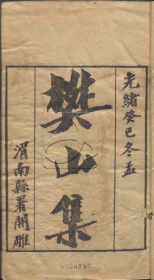 光緒癸巳冬孟
樊山集
渭南縣署開雕